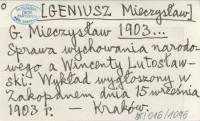 [GENIUSZ Mieczysław]
G. Mieczysław 1903...
Sprawa wychowania narodo-
wego a Wincenty Lutosław-
ski. Wykład wygłoszony w
Zakopanem dnia 15 września
1903 r. — Kraków.